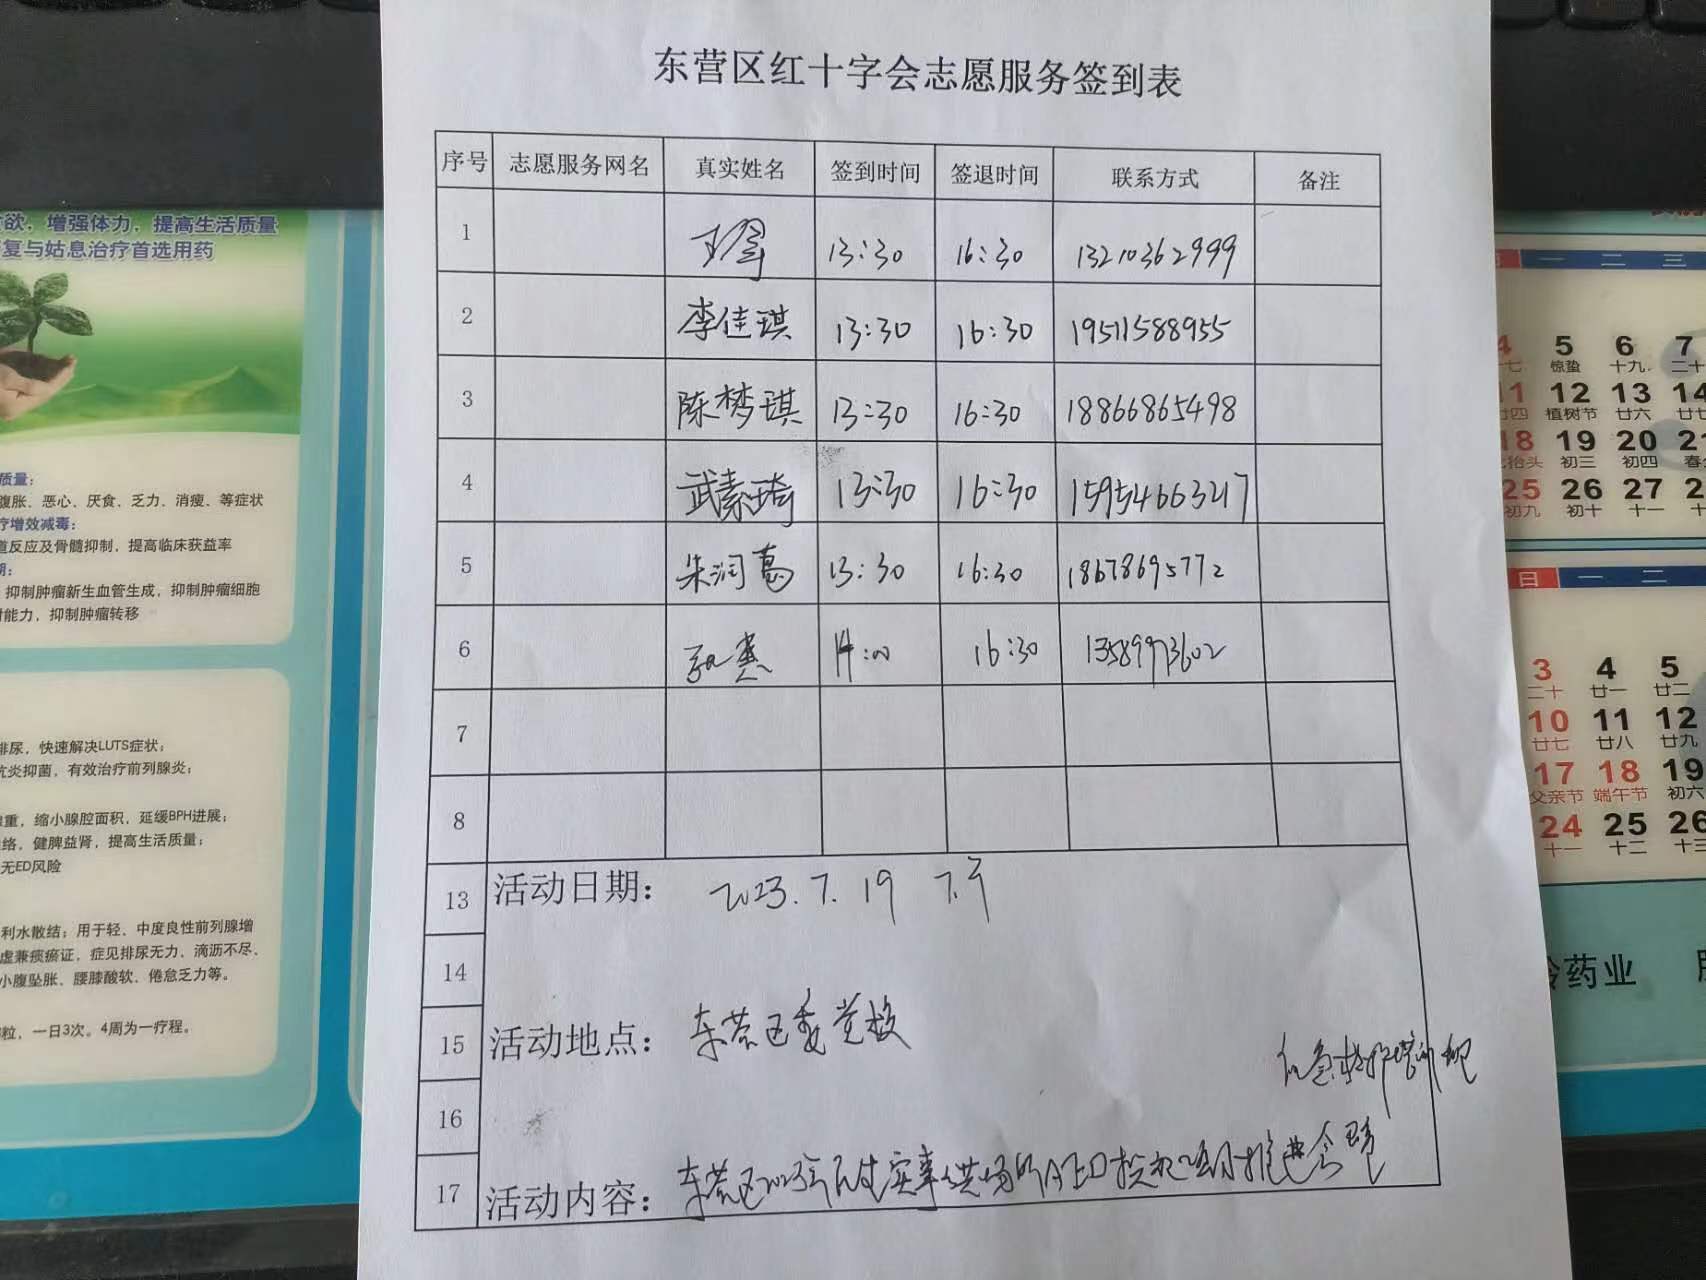 东营区红十字会志愿服务签到表
序号 志愿服务网名 真实姓名 签到时间 签退时间 联系方式 备注
1 13:30 16:30 13210362999
2 李佳琪 13:30 16:30 19511588955
3 陈梦琪 13:30 16:30 18866865498
4 武素琦 13:30 16:30 15954663217
5 朱润葛 13:30 16:30 18678695772
6 14:00 16:30 13589973602
7
8
13 活动日期: 2023.7.19 下午
14
15 活动地点: 东营区委党校
16
应急救护培训班
17 活动内容: 东营区2023年民生实事公共场所AED投放项目推进会暨
欲，增强体力，提高生活质量
复与姑息治疗首选用药
质量:
腹胀、恶心、厌食、乏力、消瘦、等症状
疗增效减毒:
道反应及骨髓抑制，提高临床获益率
期:
抑制肿瘤新生血管生成，抑制肿瘤细胞
能力，抑制肿瘤转移
排尿，快速解决LUTS症状;
抗炎抑菌，有效治疗前列腺炎;
重，缩小腺腔面积，延缓BPH进展;
络，健脾益肾，提高生活质量;
无ED风险
利水散结; 用于轻、中度良性前列腺增
虚兼痰瘀证，症见排尿无力、滴沥不尽、
小腹坠胀、腰膝酸软、倦怠乏力等。
粒，一日3次。4周为一疗程。
一 二 三
4 5 6 7
十七 惊蛰 十九 二十
11 12 13 14
廿四 植树节 廿六 廿七
18 19 20 21
龙抬头 初三 初四 春分
25 26 27 2
初九 初十 十一 十
日 一 二
3 4 5
二十 廿一 廿二
10 11 12
廿七 廿八 廿九
17 18 19
父亲节 端午节 初六
24 25 26
十一 十二 十三
药业